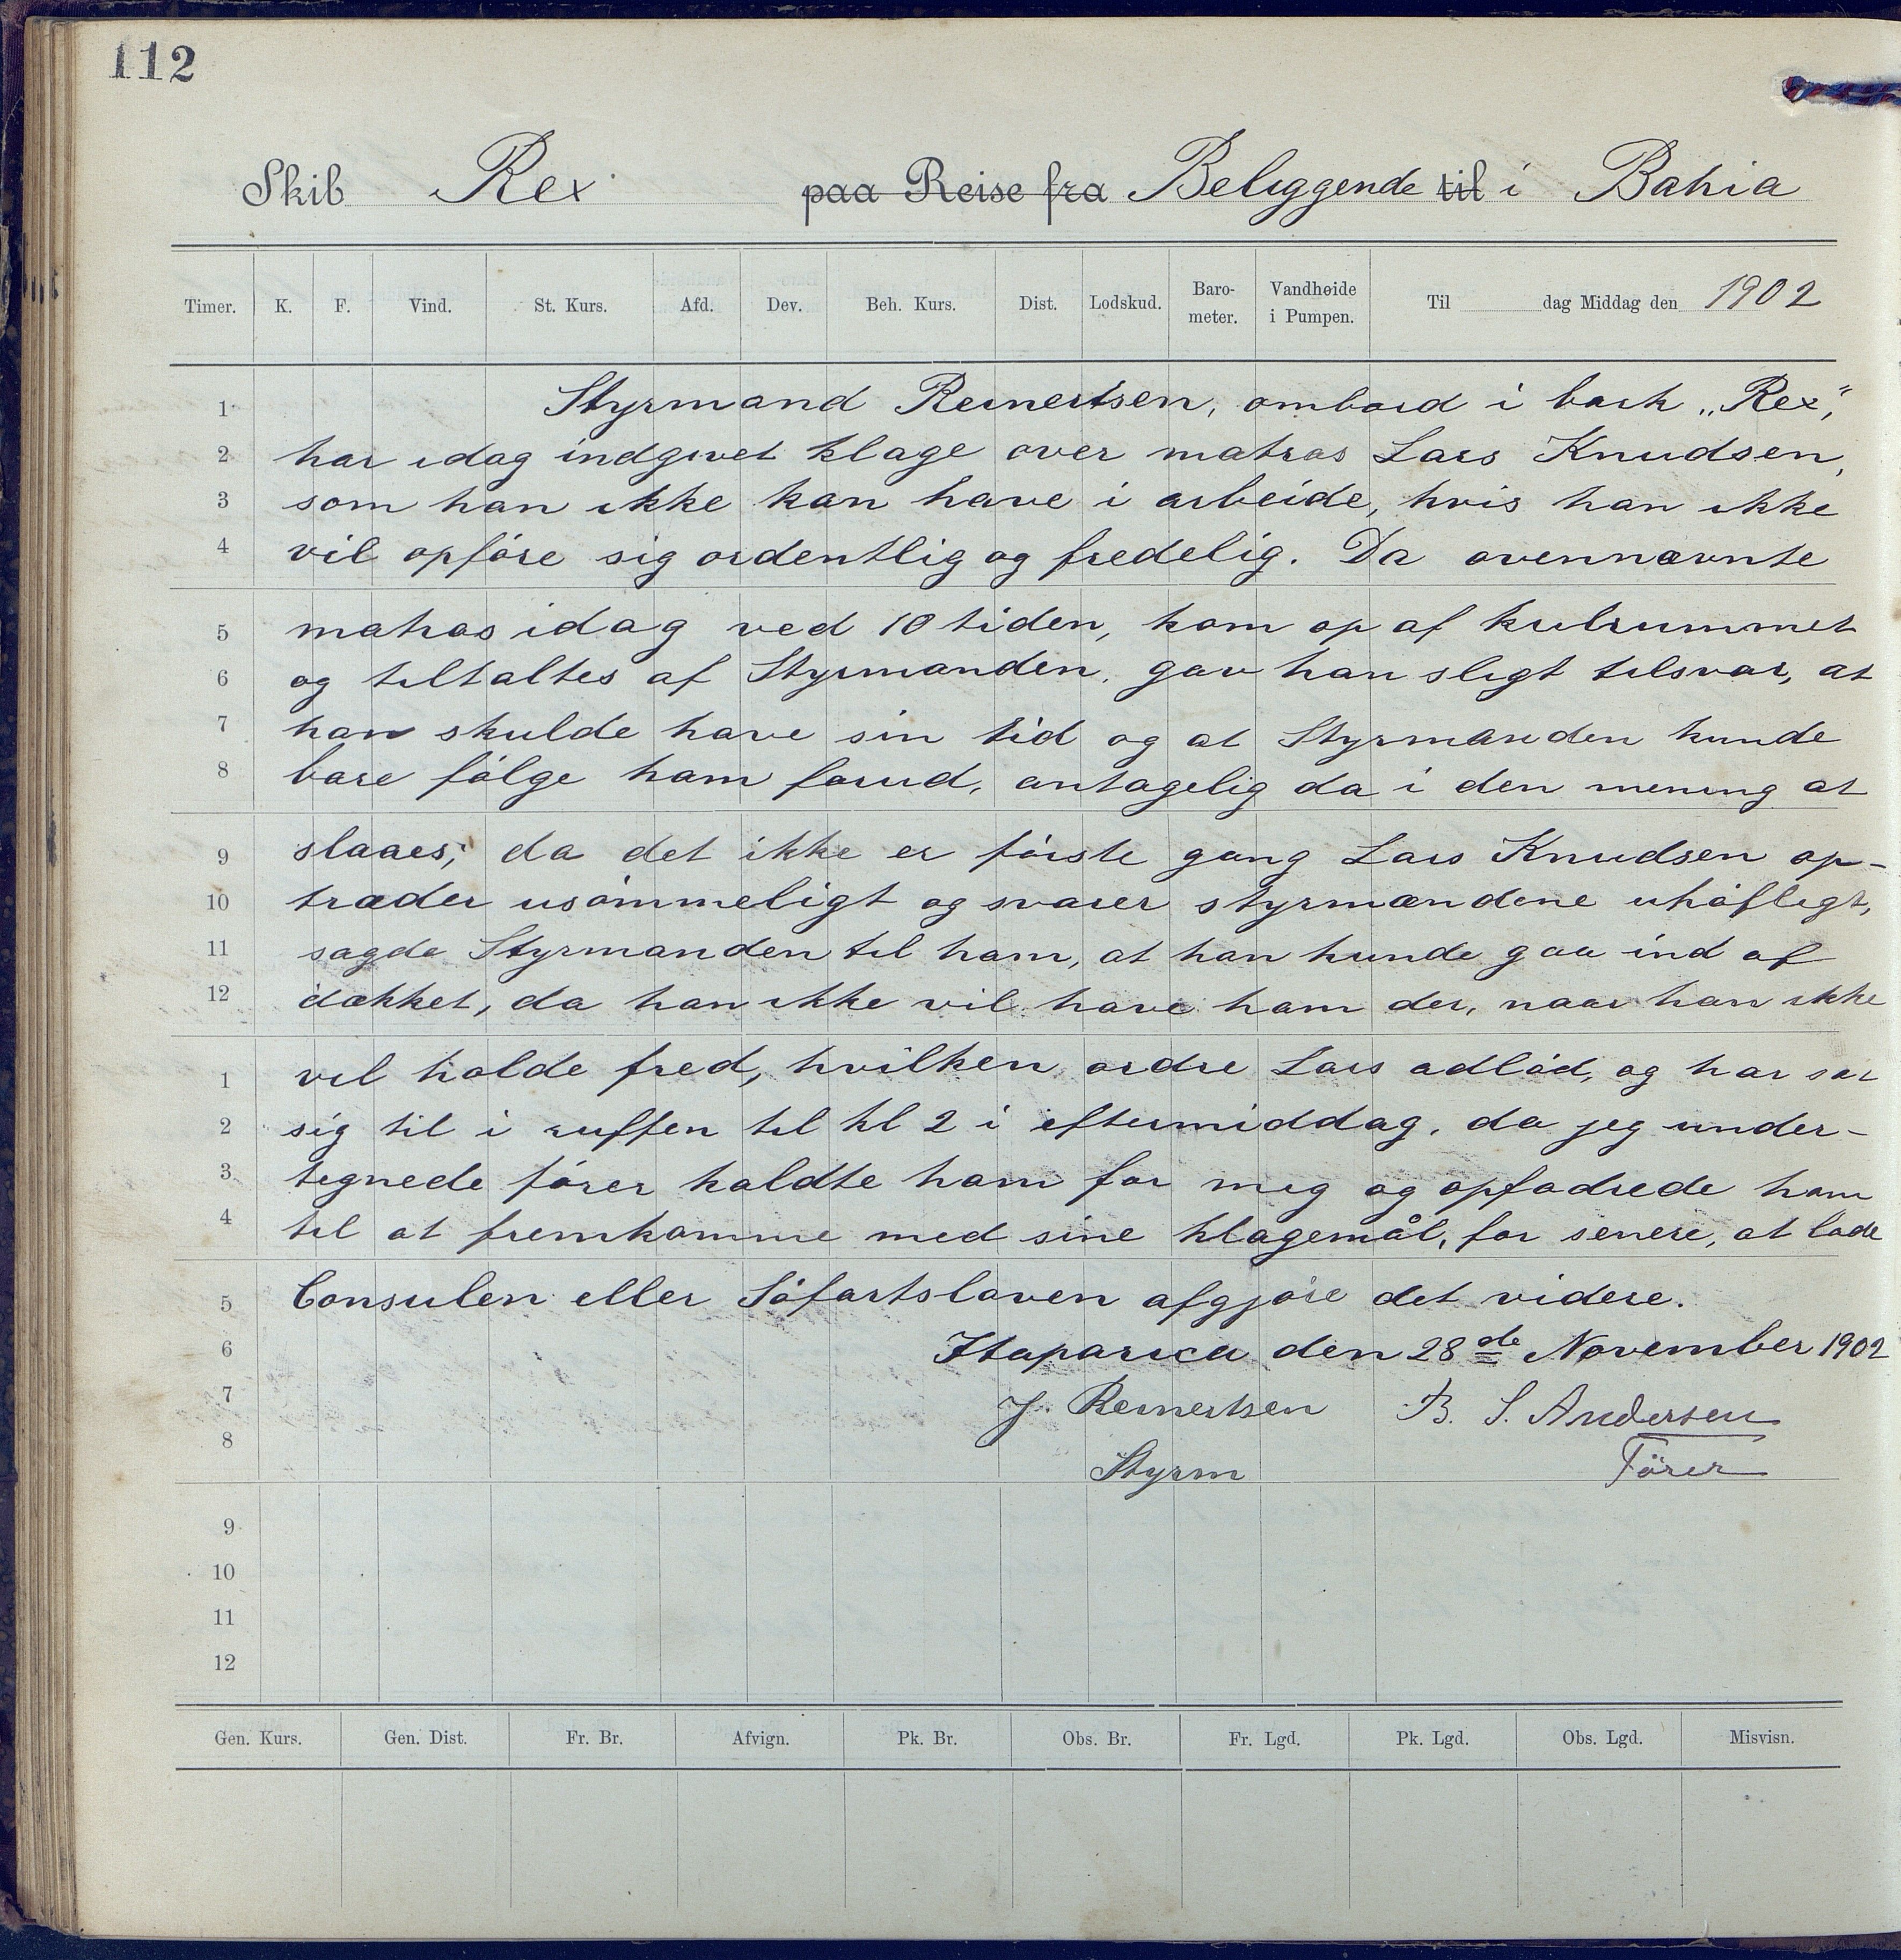 112
Skib Rex paa Reise fra Beliggende til i Bahia
Timer. K. F. Vind. St. Kurs. Afd. Dev. Beh. Kurs. Dist. Lodskud. Baro-meter. Vandhøide i Pumpen. Til dag Middag den 1902
1 Styrmand Reinertsen, ombord i bark „Rex",
2 har idag indgivet klage over matros Lars Knudsen,
3 som han ikke kan have i arbeide, hvis han ikke
4 vil opföre sig ordentlig og fredelig. Da ovennævnte
5 matros idag ved 10 tiden, kom op af kulrummet
6 og tiltaltes af Styrmanden, gav han sligt tilsvar, at
7 han skulde have sin tid og at Styrmanden kunde
8 bare fölge ham forud, antagelig da i den mening at
9 slaaes; da det ikke er förste gang Lars Knudsen op-
10 træder usömmeligt og svarer styrmændene uhöfligt,
11 sagde Styrmanden til ham, at han kunde gaa ind af
12 dækket, da han ikke vil have ham der, naar han ikke
1 vil holde fred, hvilken ordre Lars adlöd, og har
2 sig til i ruffen til kl 2 i eftermiddag, da jeg under-
3 tegnede förer kaldte ham for mig og opfodrede ham
4 til at fremkomme med sine klagemål, for senere, at lade
5 Consulen eller Söfartsloven afgjöre det videre.
6 Itaparica den 28de November 1902
7 J. Reinertsen B. S. Andersen
8 Styrm Förer
9
10
11
12
Gen. Kurs. Gen. Dist. Fr. Br. Afvign. Pk. Br. Obs. Br. Fr. Lgd. Pk. Lgd. Obs. Lgd. Misvisn.